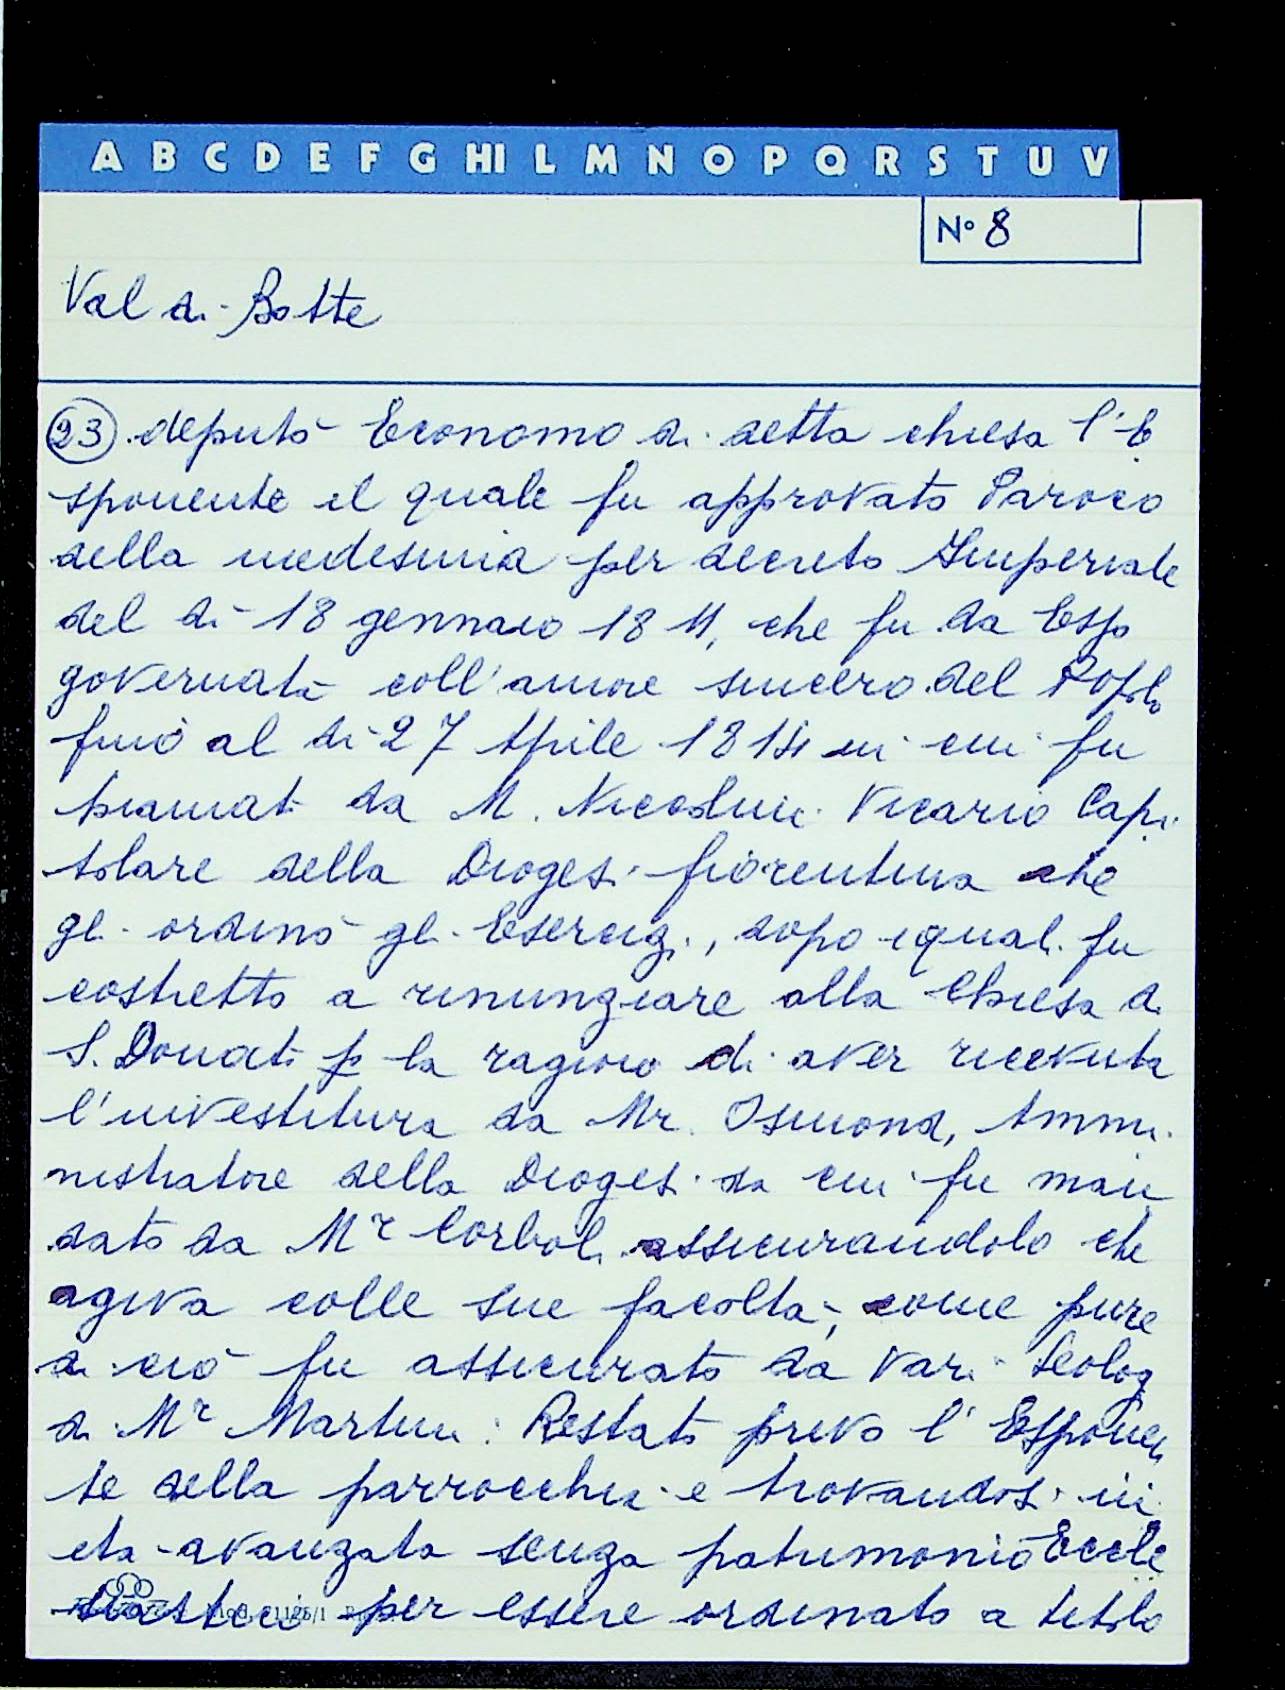 A B C D E F G HI L M N O P Q R S T U V
N° 8
Val di Botte
23 . deputò Economo di detta chiesa l'E
sponente il quale fu approvato Paroco
della medesima per decreto Imperiale
del dì 18 gennaio 1811, che fu da Esso
governata coll'amore sincero del Popolo
finò al dì 27 Aprile 1814 in cui fu
biamat da M. Niccolini Vicario Capi
tolare della Diogesi fiorentina che
gli ordinò gli Esercizi, dopo i quali fu
costretto a rinunziare alla Chiesa di
S. Donato p la ragione di aver ricevuta
l'investitura da Mr. Osmond, Ammi
nistratore della Diogesi da cui fu man
dato da Mr Corboli assicurandolo che
agiva colle sue facoltà, come pure
di ciò fu assicurato da vari teolog
di Mr Martini: Restato privo l'Esponen
te della parrocchia e trovandosi in
età avanzata senza patrimonio Eccle
siastico per essere ordinato a titolo